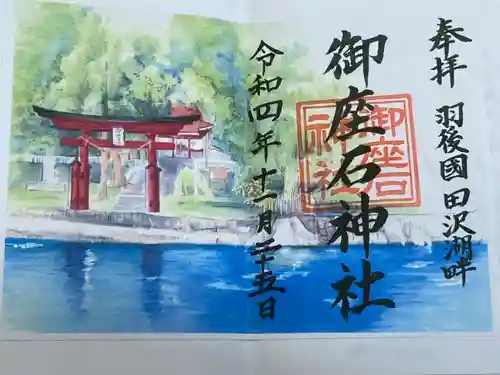 奉拝 羽後國田沢湖畔
御座石神社
御座石
神社
令和四年十一月二十五日